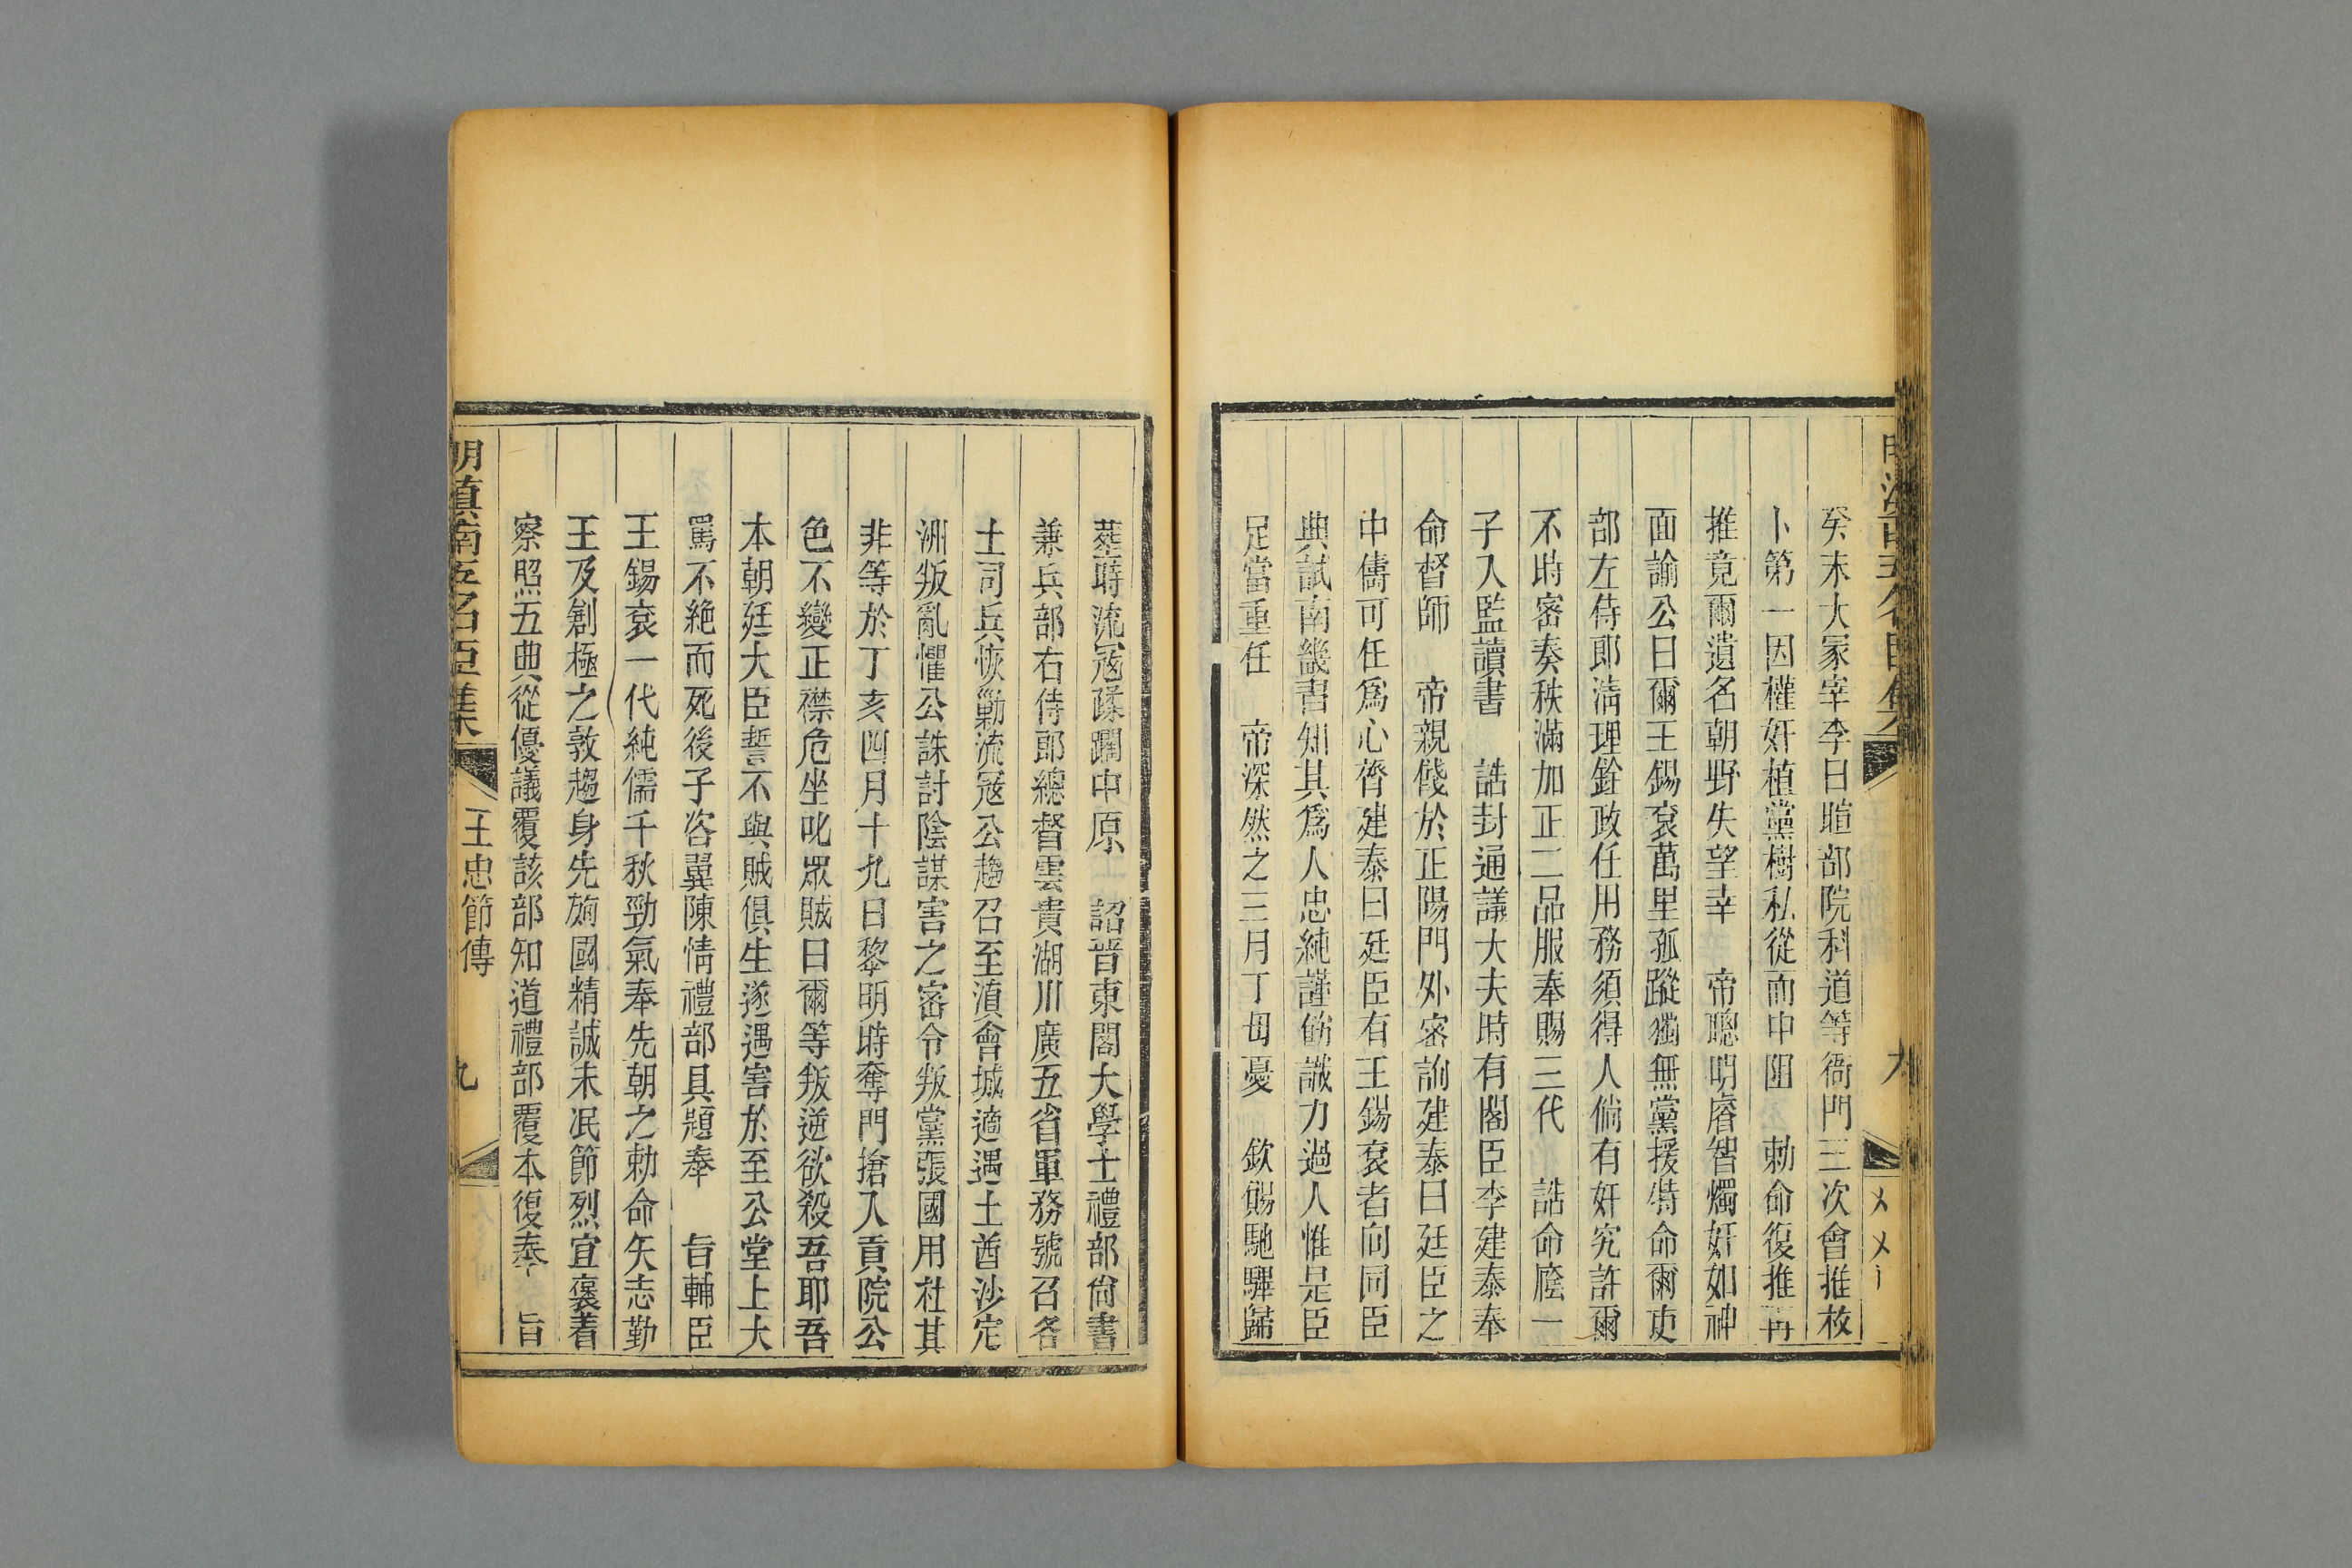 癸未大冢宰李日暄部院科道等衙門三次會推枚
卜第一因權奸植黨樹私從而中阻　勅命復推再
推竟爾遺名朝野失望幸　帝聰明睿智燭奸如神
面諭公曰爾王錫袞萬里孤蹤獨無黨援特命爾吏
部左侍郎清理銓政任用務須得人倘有奸究許爾
不時密奏秩滿加正二品服奉賜三代　誥命廕一
子入監讀書　誥封通議大夫時有閣臣李建泰奉
命督師　帝親餞於正陽門外密詢建泰曰廷臣之
中儔可任爲心膂建泰曰廷臣有王錫袞者向同臣
典試南畿書知其爲人忠純謹飭識力過人惟是臣
足當重任　帝深然之三月丁母憂　欽賜馳驛歸
塟時流冦蹂躙中原　詔晋東閣大學士禮部尙書
兼兵部右侍郎總督雲貴湖川廣五省軍務號召各
土司兵恢勦流冦公趨召至滇會城適遇土酋沙定
洲叛亂懼公誅討陰謀害之密令叛黨張國用杜其
非等於丁亥四月十九日黎明時奪門搶入貢院公
色不變正襟危坐叱眾賊曰爾等叛逆欲殺吾耶吾
本朝廷大臣誓不與賊俱生遂遇害於至公堂上大
罵不絶而死後子咨翼陳情禮部具題奉　旨輔臣
王錫袞一代純儒千秋勁氣奉先朝之勅命矢志勤
王及創極之敦趨身先殉國精誠未冺節烈宜褒着
察照五典從優議覆該部知道禮部覆本復奉　旨
明滇南五名臣集　王忠節傳　九